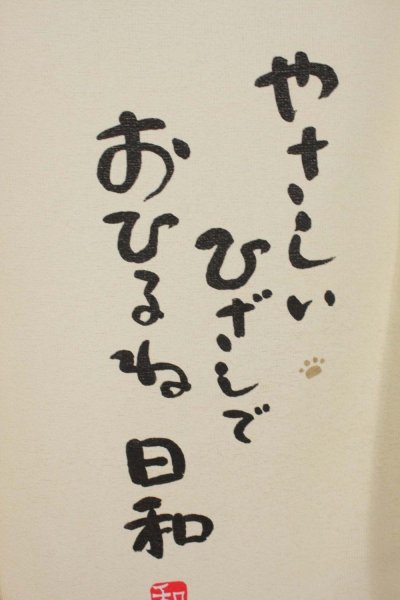 やさしい
ひざしで
おひるね日和